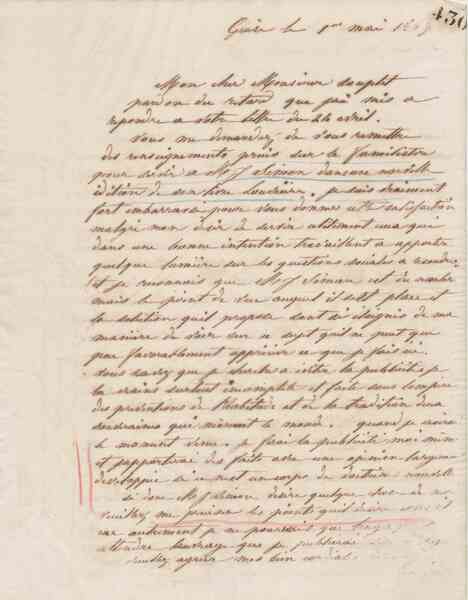 430
Guise le 1er mai 18
Mon cher Monsieur Souplet
pardon du retard que j'ai mis a
repondre a votre lettre du 26 avril.
Vous me demandez de vous remettre
des renseignements precis sur le familistere
pour servir a M J Simon dans une nouvelle
édition de son livre l'ouvrière. je suis vraiment
fort embarrassé pour vous donner cette satisfaction
malgré mon désir de servir utilement ceux qui
dans une bonne intention travaillent a apporter
quelque lumière sur les questions sociales a resoudre
et je reconnais que M J Simon est du nombre
mais le point de vue auquel il s'est placé et
la solution qu'il propose sont si éloignés de ma
manière de voir sur ce sujet qu'il ne peut que
peu favorablement apprécier ce que je fais ici.
vous savez que je cherche a éviter la publicité je
la crains surtout incomplète et faite sous l'empire
des préventions de l'habitude et de la tradition deux
souverains qui mènent le monde. quand je croirai
le moment venu. je ferai la publicité moi même
et j'apporterai des faits avec une opinion largement
développée si ce n'est un corps de doctrine nouvelle
si donc M J Simon désire quelque chose de moi
veuillez me préciser les points qu'il désire
car autrement je ne pourrais que
attendre l'ouvrage que je publierai
veuillez agréer mes bien